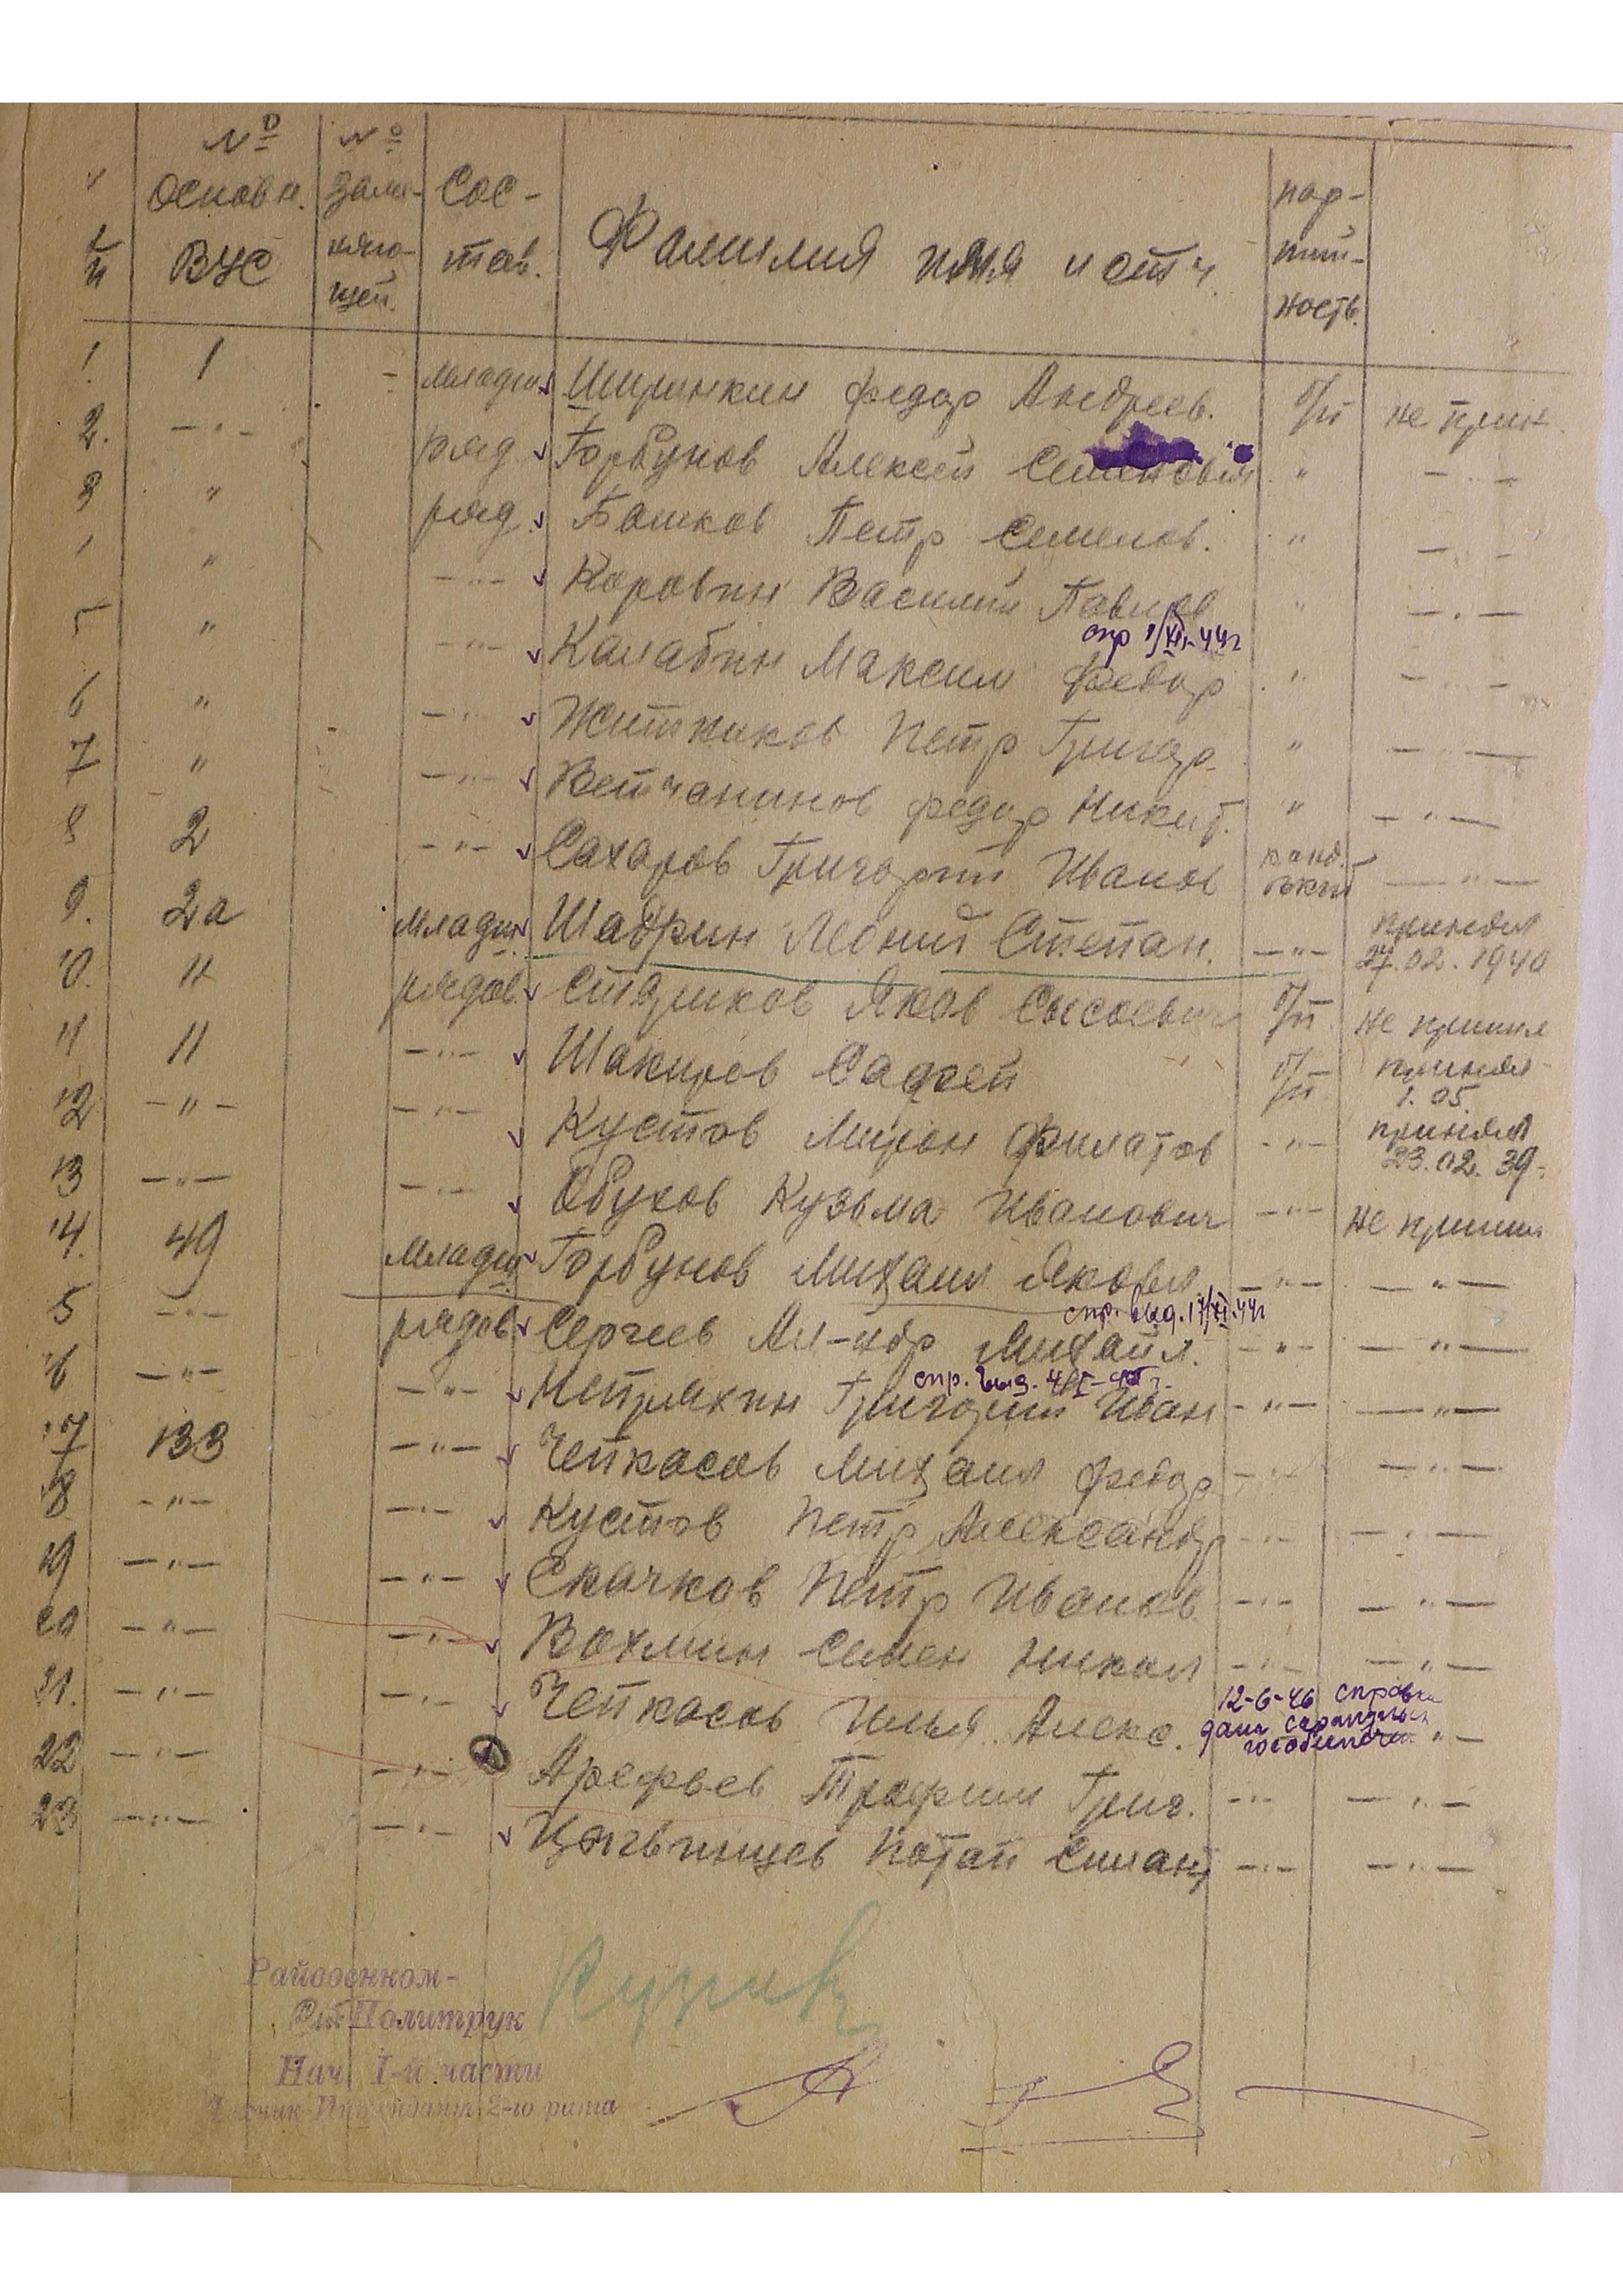 № п/п № основн. ВУС № заме- няю- щей. Сос- тав. Фамилия имя и отч. пар- тий- ность.
1. 1 - младш. Ширинкин Федор Андреев. б/п не прин.
2. -"- ряд. Горбунов Алексей Семенович " -"-
3 " ряд. Башков Петр Семенов. " -"-
" -"- Коровин Василий Павлов " -"-
спр 1/XI-44г
5 " -"- Калабин Максим Федор " -"-
6 " -"- Житников Петр Григор. " -"-
7 " -"- Ветчанинов Федор Никит. " -"-
8 2 -"- Сахаров Григорий Иванов канд. -"-
9. 2а младш. Шадрин Леонид Степан. -"- принял 27.02.1940
10. 11 рядов. Стариков Яков Сысоевич б/п не принял
11 11 -"- Шакиров Садгей б/п принял 1.05.
12 -"- -"- Кустов Мирон Филатов -"- принял 23.02.39.
13 -"- -"- Обухов Кузьма Иванович -"- не принял
14. 49 младш. Горбунов Михаил Яковл. -"- -"-
спр. выд. 17/XI-44г
5 -"- рядов. Сергеев Ал-ндр Михайл. -"- -"-
спр. выд.
16 -"- -"- Непряхин Григорий Иван -"- -"-
17 133 -"- Чепкасов Михаил Федор -"- -"-
18 -"- -"- Кустов Петр Александр -"- -"-
19 -"- -"- Скачков Петр Иванов -"- -"-
20 -"- -"- Вахмин Семен Никол -"- -"-
21. -"- -"- Чепкасов Илья Алекс. 12-6-46 справка дана "-
22 -"- -"- Арефьев Трофим Григ. -"- -"-
23 -"- -"- Потап Силант -"- -"-
Райвоенком-
Политрук
Нач. I-й части
Техник-Интендант 2-го ранга